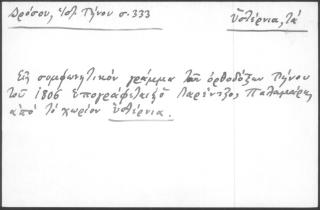 Δρόσου, Ἱστ. Τήνου σ. 333
Ὑστέρνια, τά
Εἰς συμφωνητικόν γράμμα τῶν ὀρθοδόξων Τήνου
τοῦ 1806 ὑπογράφεται ὁ Λαρέντζος Παλαμάρης
ἀπό τό χωρίον Ὑστέρνια.